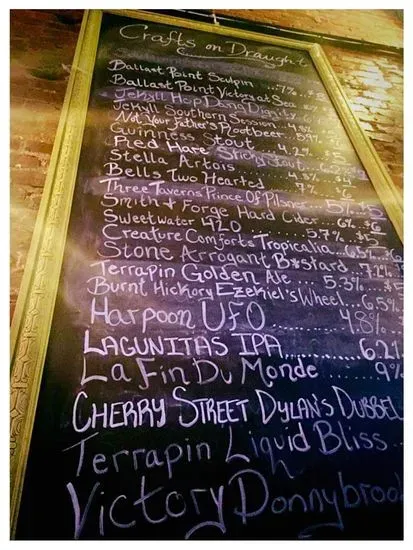 Crafts on Draught
Ballast Point Sculpin ...7%..$
Ballast Point Victory at Sea
Jekyll Hop Dang Diggity
Jekyll Southern Session ...4.8%
Not Your Father's Rootbeer ..5.9%
Guinness Stout ...4.2%
Pied Hare Sticky Stout
Stella Artois
Bells Two Hearted 7% $6
Three Taverns Prince Of Pilsner ...5%..$5
Smith & Forge Hard Cider ...6%..$
Sweetwater 420 ...5.7%..$5
Creature Comforts Tropicalia ...6.5%.$6
Stone Arrogant B*stard ..7.2%
Terrapin Golden Ale ...5.3%..$5
Burnt Hickory Ezekiel's Wheel....6.5%
Harpoon UFO ............4.8%
LAGUNITAS IPA............6.2
La Fin Du Monde ........9%
CHERRY STREET DYLAN'S DUBBEL
Terrapin Liquid Bliss..
Victory Donnybrook